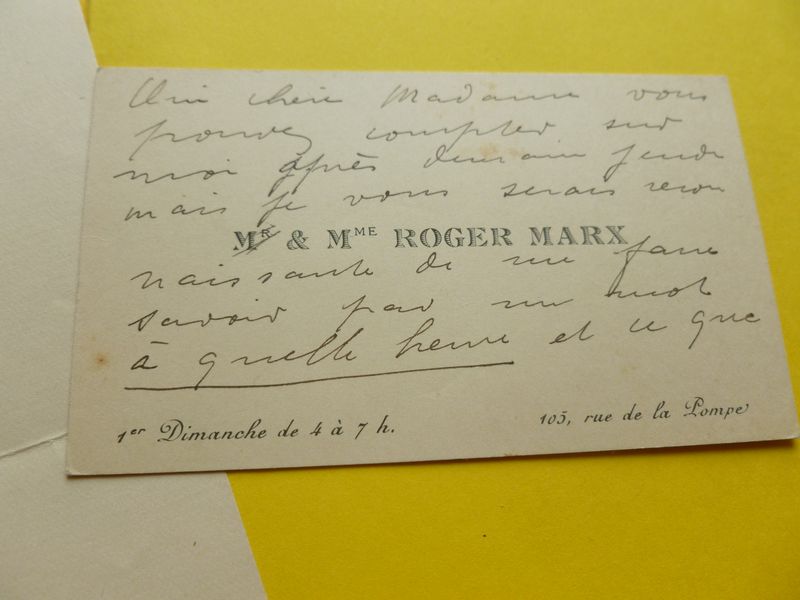 Oui chère Madame vous
pouvez compter sur
moi après demain jeudi
mais je vous serais recon
MR & MME ROGER MARX
naissante de me faire
savoir par un mot
à quelle heure et ce que
1er Dimanche de 4 à 7 h.
105, rue de la Pompe